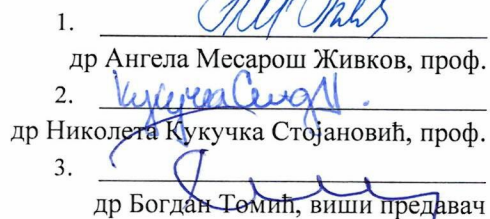 1.
др Ангела Месарош Живков, проф.
2.
др Николета Кукучка Стојановић, проф.
3.
др Богдан Томић, виши предавач